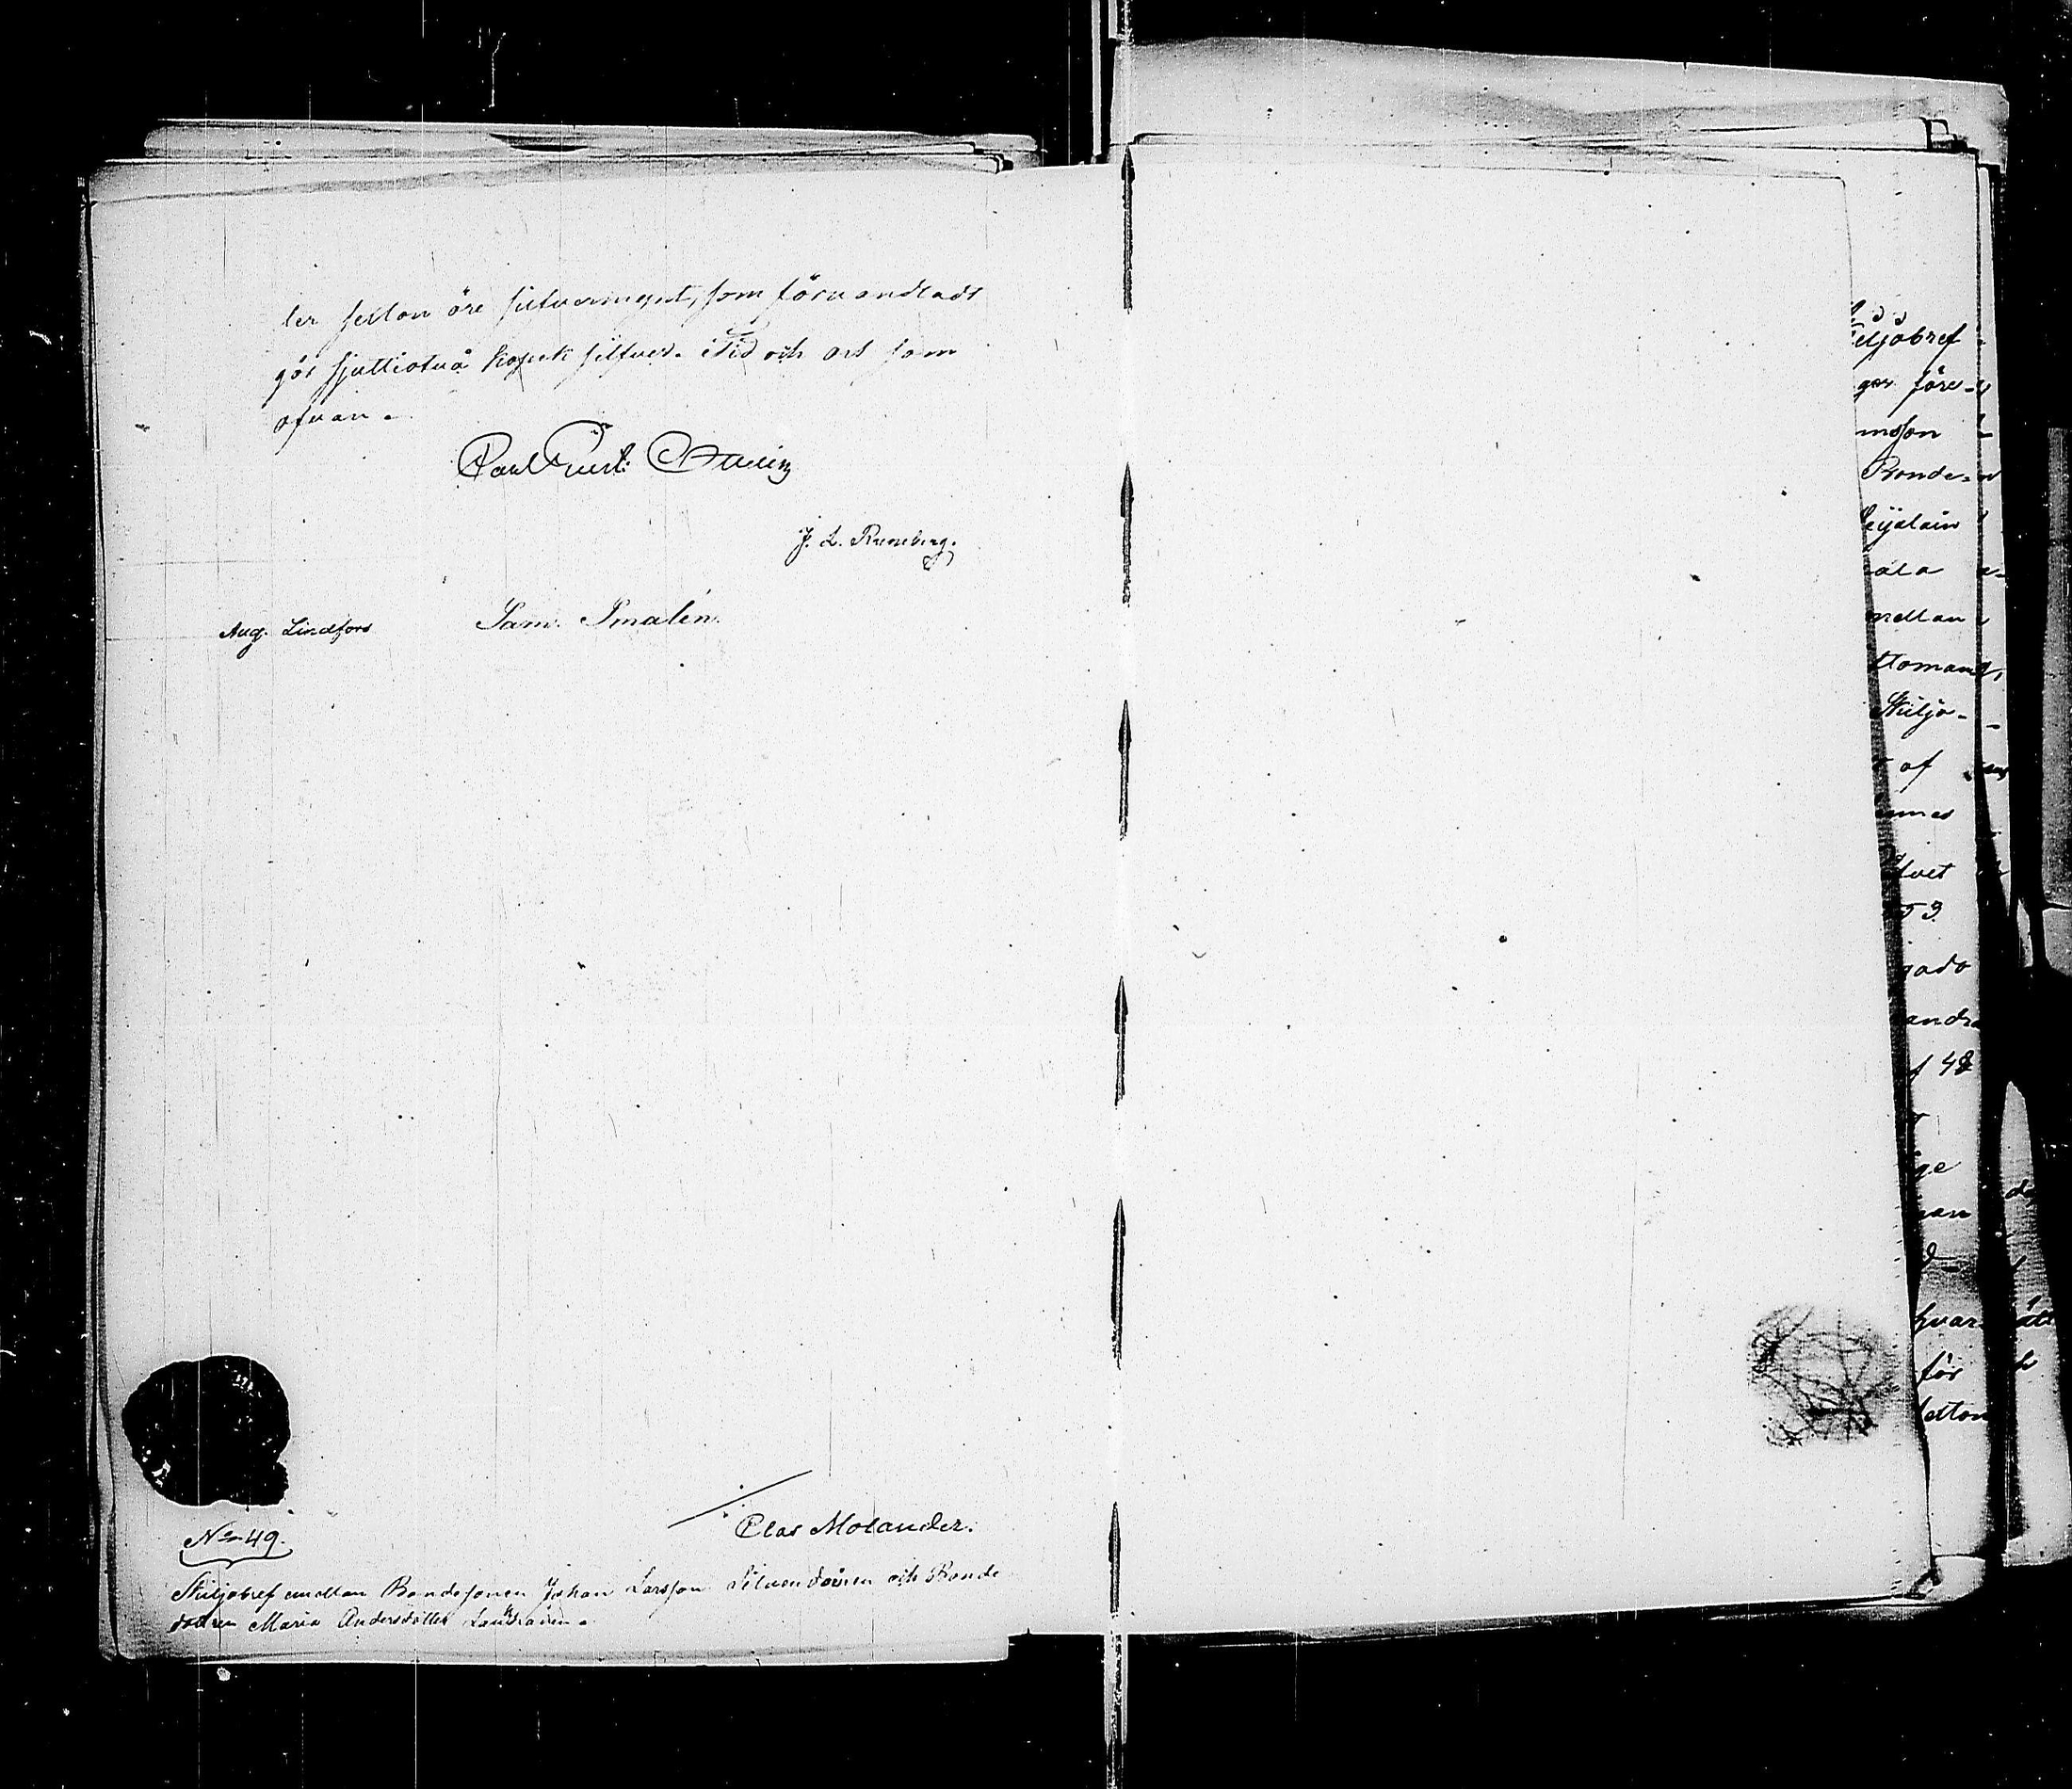 ler sexton öre silfvermynt, som förvandladt
gör sjuttiotvå kopek silfver. Tid och ort som
ofvan.
J. L. Runeberg.
Aug. Lindfors Sam. Smalén.
Clas Molander.
No 49.
Skiljobref emellan Bondesonen Johan Larsson Silvendoinen och Bonde
dottren Maria Andersdotter
eljobref
ger före-
insson
Bonde-
ala
mellan
ttomans,
Skiljo-
af
annes
53
gado
andra
f 48
ige
nan
hvar
för
sexton